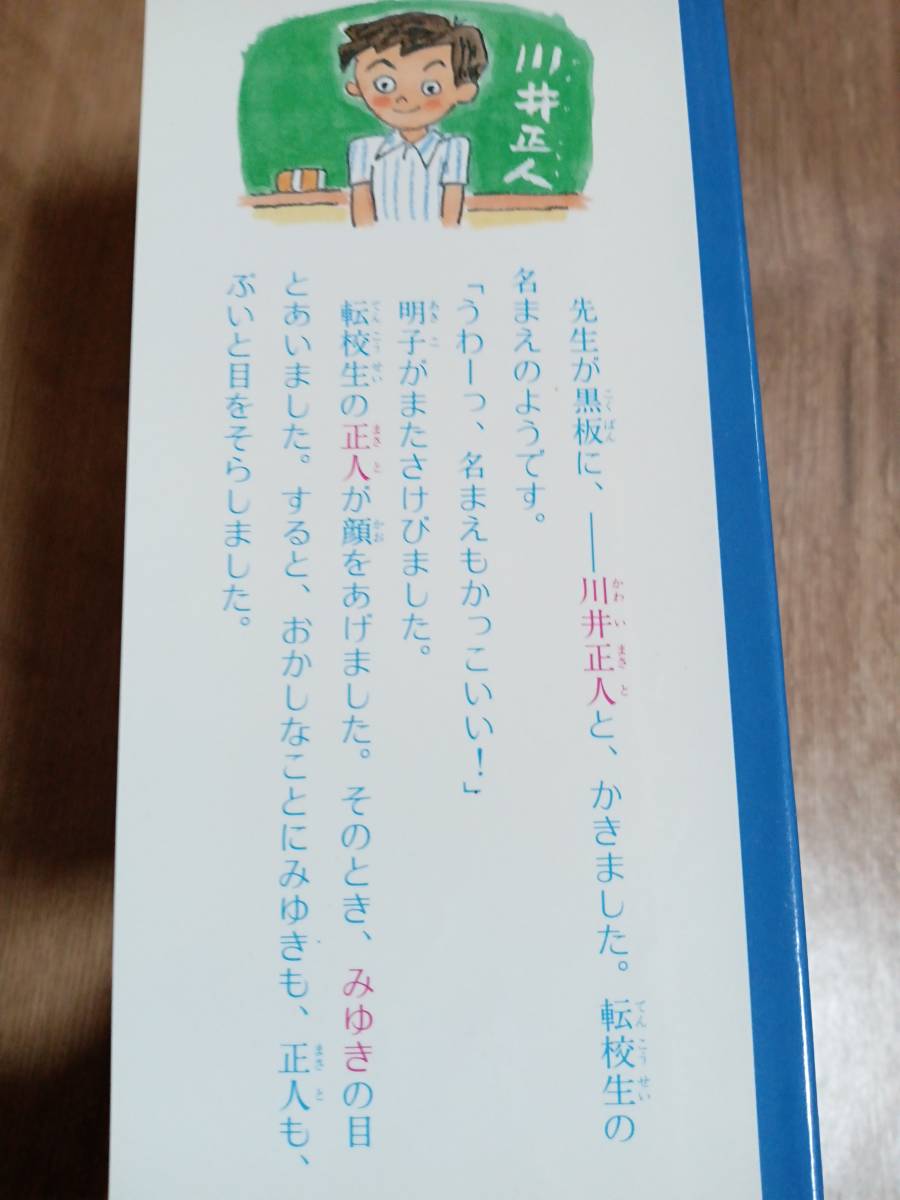 川井正人
先生が黒板に、――川井正人と、かきました。転校生の
名まえのようです。
「うわーっ、名まえもかっこいい!」
明子がまたさけびました。
転校生の正人が顔をあげました。そのとき、みゆきの目
とあいました。すると、おかしなことにみゆきも、正人も、
ぷいと目をそらしました。